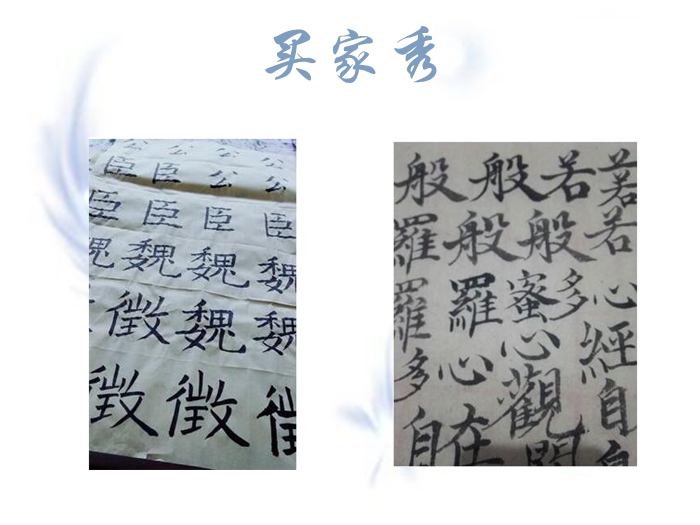 买家秀
公 公 公 公
臣 臣 公 公
臣 臣 臣 臣
魏 魏 魏 魏
徵 魏 魏
徵 徵 徵
般 般 若 若
羅 般 般 若
羅 羅 蜜 多 心
多 心 心 經
自 在 觀 自